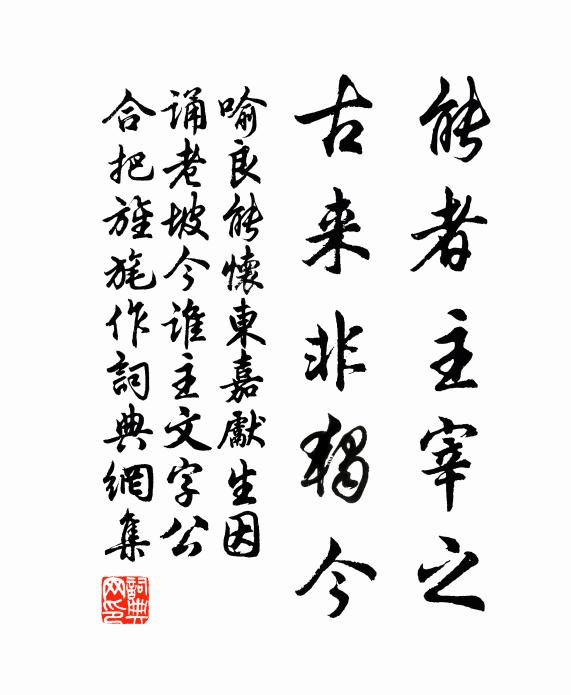 能者主宰之
古来非獨今
喻良能懷東嘉獻生因
誦老坡今誰主文字公
合把旌旄作詞典網集
詞典網印